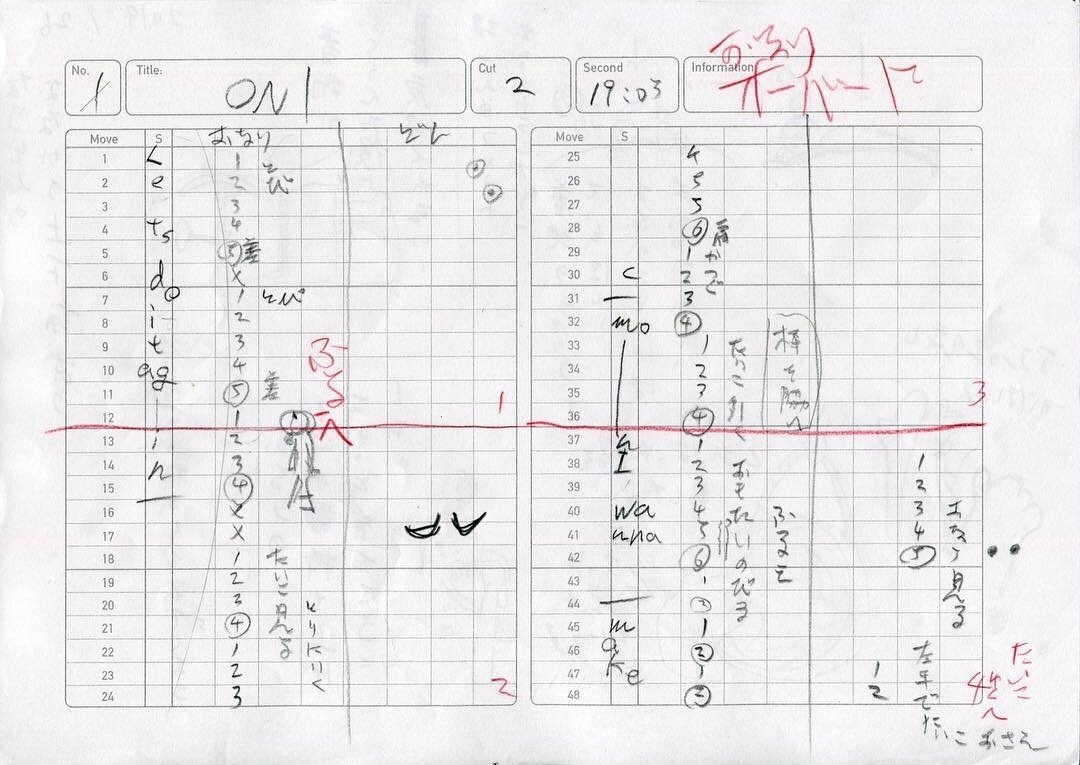 No. 1 Title: ON 1 Cut 2 Second 19:03 Information
Move S おなり
1 L 1 とび
2 e 2
3 3
4 ts 4
5 ⑤ 差
6 do X
7 1 とび
8 i 2
9 t 3
10 ag 4
11 | ⑤ 差
12 1
13 i 2
14 n 3
15 ④
16 X
17 X
18 1
19 2
20 3
21 ④
22 1
23 2
24 3
たいこ見る
とりにいく
1
2
Move S
25 4
26 5
27 5
28 ⑥
29 1
30 c 2
31 3
32 mo ④
33 1
34 2
35 3
36 ④
37 n 1
38 I 2
39 3
40 wa 4
41 nna 5
42 ⑥
43 1
44 ②
45 m 1
46 a ②
47 ke 1
48 ②
たいこ引く
棒を脇へ
おもたいのびる
3
1
2
3
4
⑤
見る
1
2
左手で
たいこ おさえ
たいこ